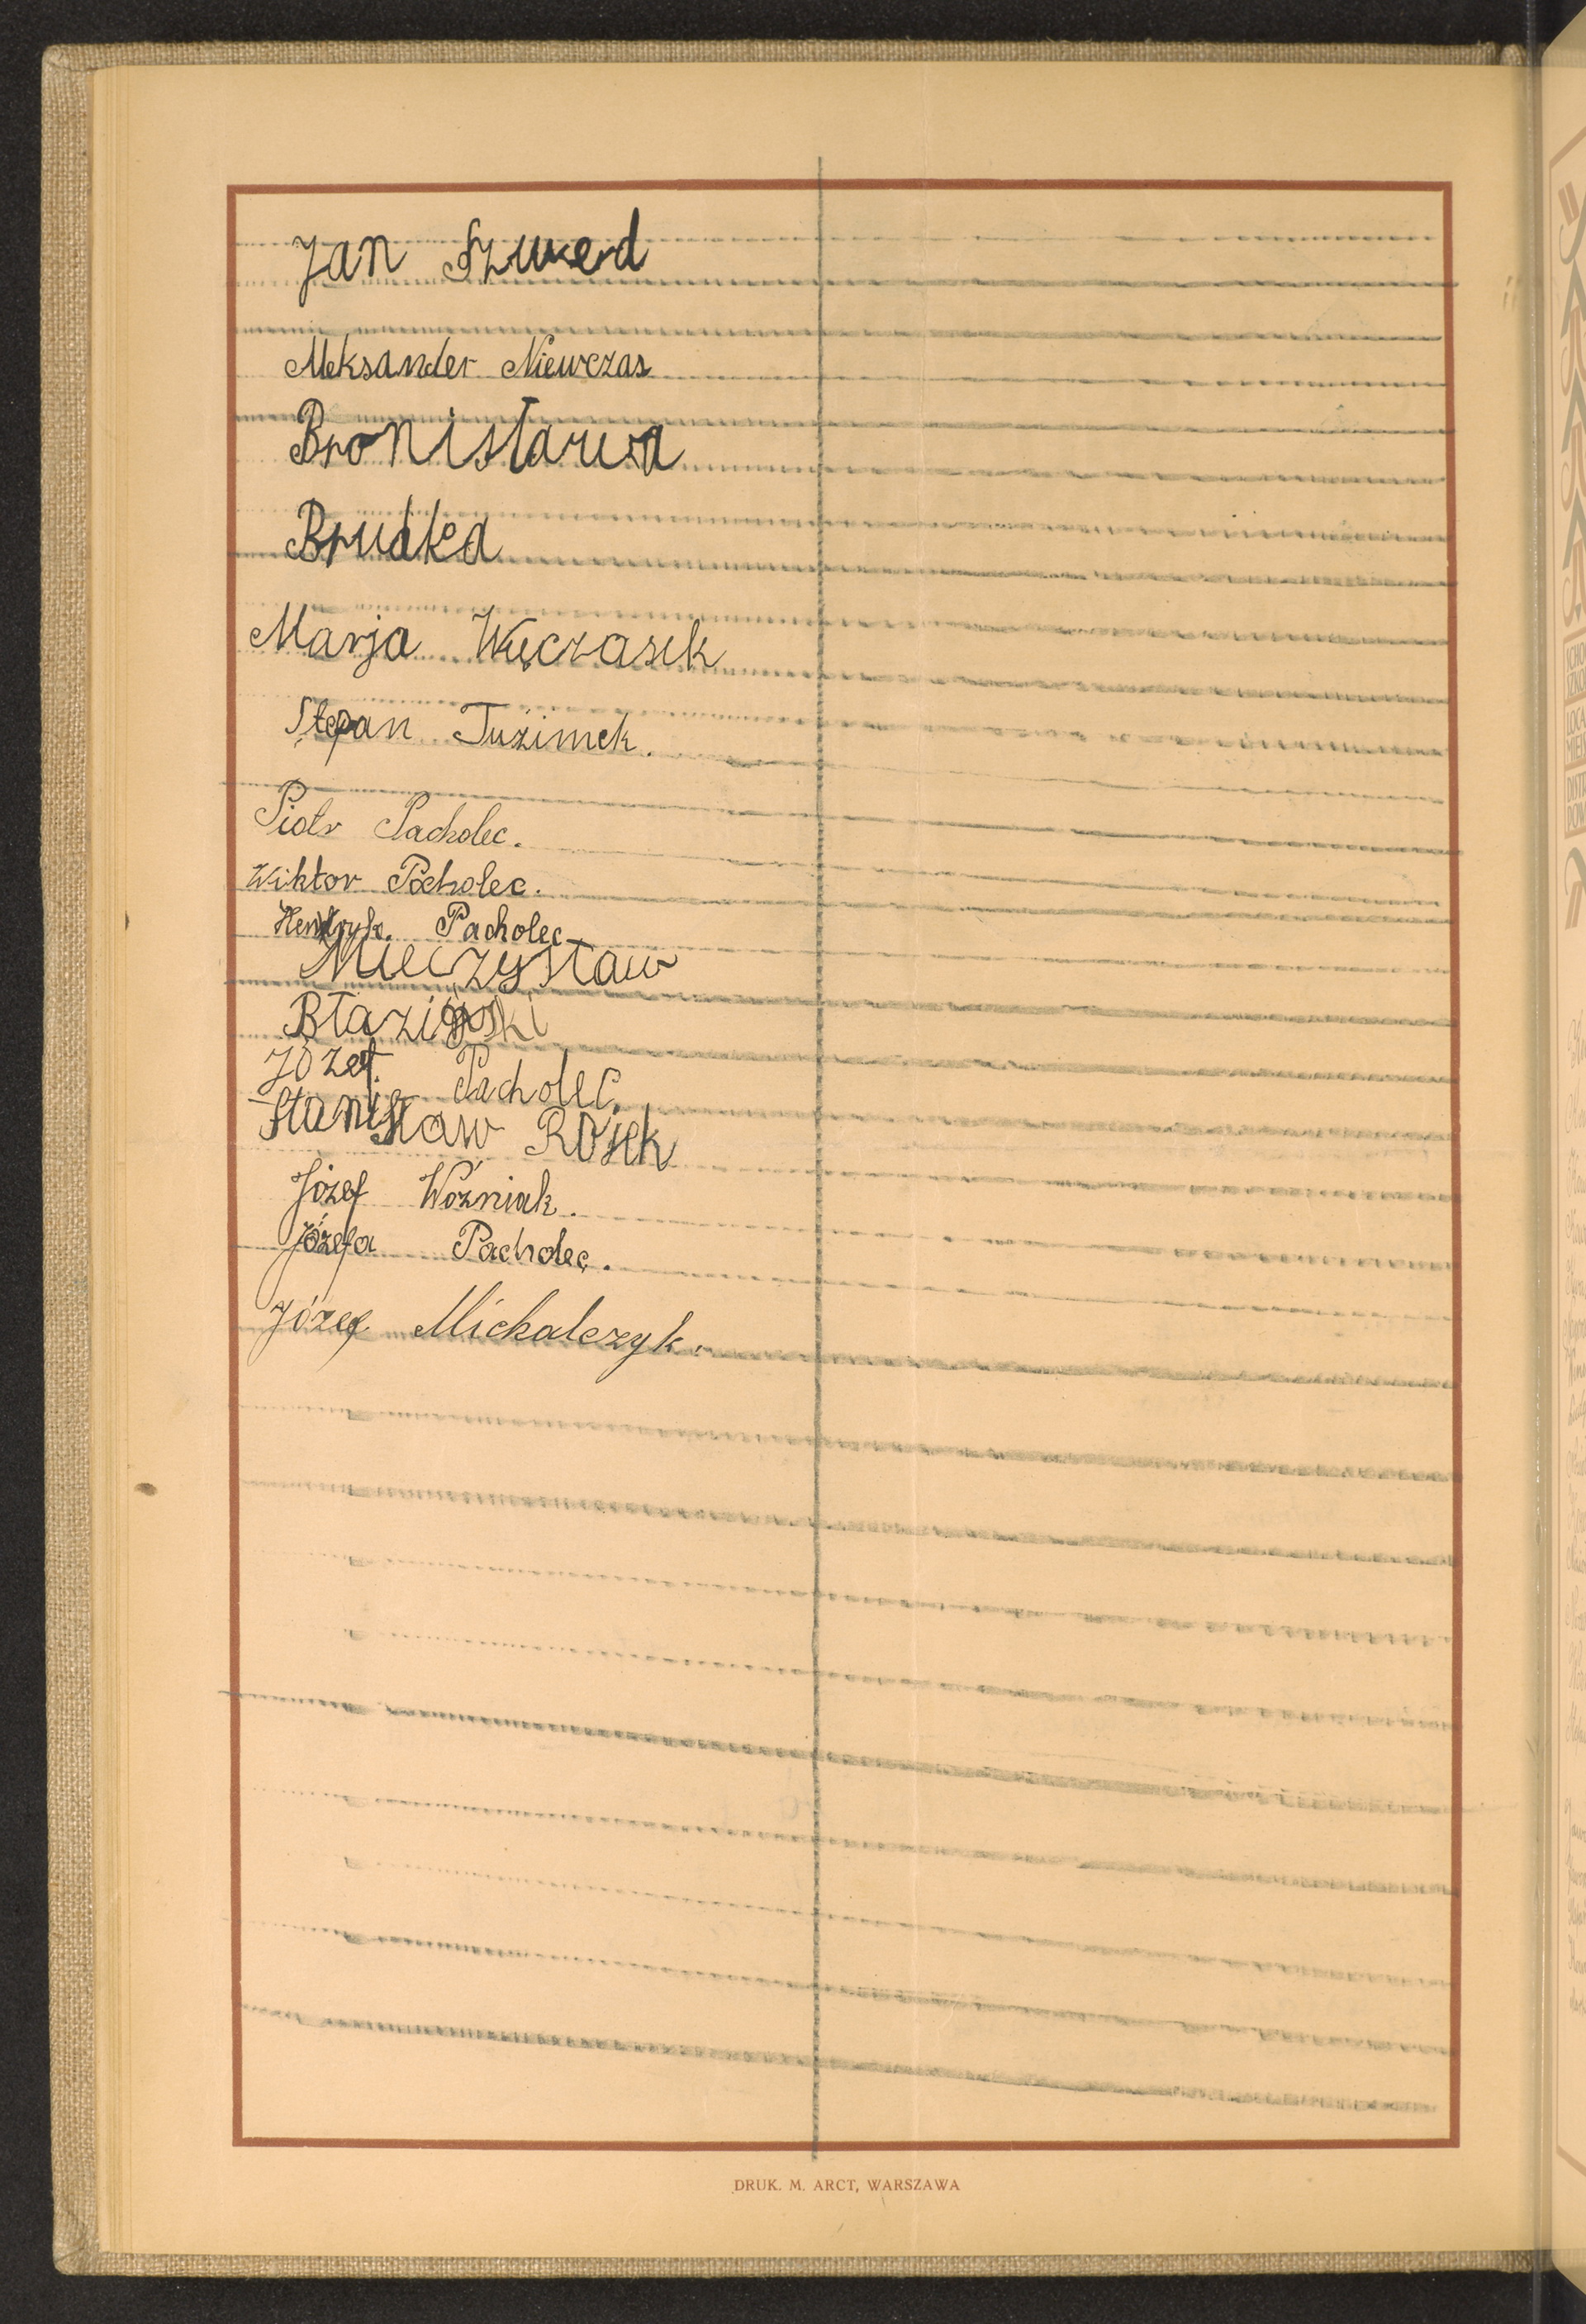 Jan Szwerd
Aleksander Niewczas
Bronisława
Brudka
Marja Węczasek
Stepan Tuzimek.
Piotr Pacholec.
Wiktor Pacholec.
Henryk. Pacholec
Mieczysław
Błaziński
Józef. Pacholec.
Stanisław Rosek
Józef Woźniak.
Józefa Pacholec.
Józef Michalczyk.
DRUK. M. ARCT, WARSZAWA